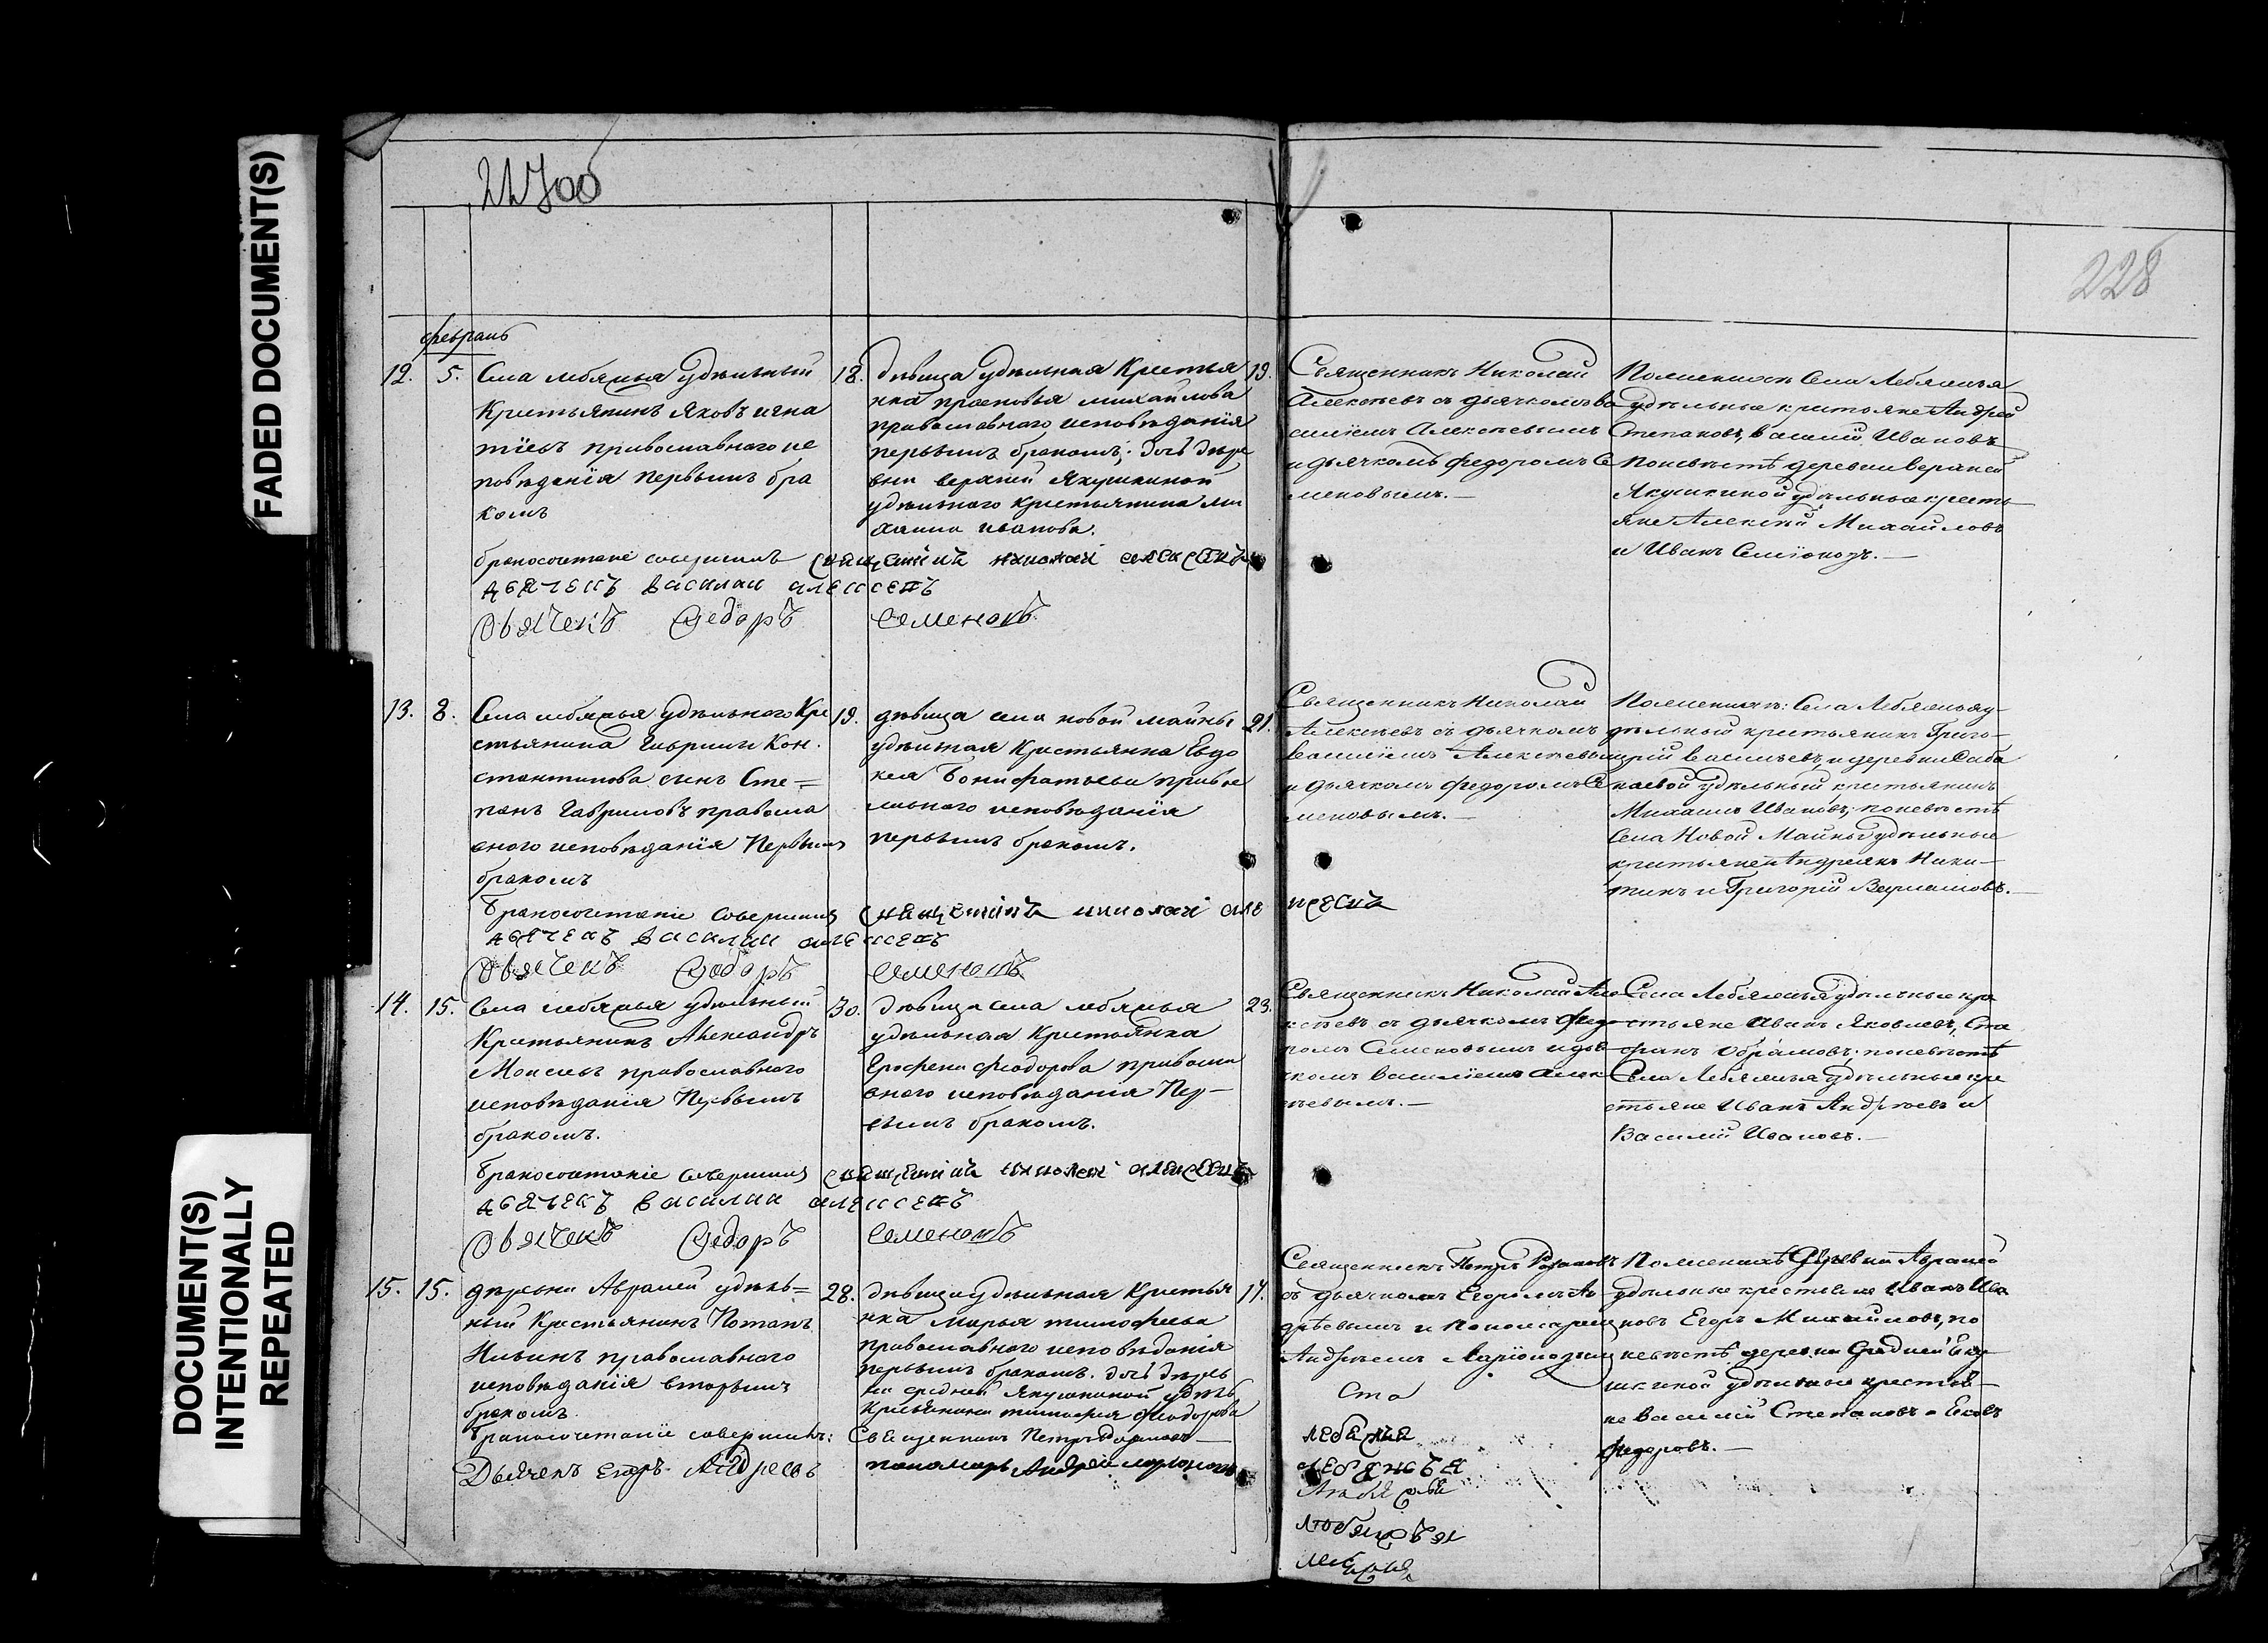 FADED DOCUMENT(S)
DOCUMENT(S)
INTENTIONALLY
REPEATED
228
февраль
12. 5.
Села лебяжья удѣльный
Крестьянинъ Яковъ игна
тіевъ православнаго ис
повѣданія первымъ бра
комъ
18.
дѣвица удѣльная Крестья
нка прасковья михайлова
православнаго исповѣданія
первымъ бракомъ; дочь дере
вни верхней Якушкиной
удѣльнаго крестьянина ми
хаила иванова.
19.
Священникъ Николай
Алексѣевъ съ дьячкомъ ва
силіемъ Алексѣевымъ
и дьячкомъ федоромъ Се
меновымъ.
По женихѣ Села Лебяжья
удѣльные крестьяне Андрей
Степановъ, василій Ивановъ
по невѣстѣ деревни верхней
Якушкиной удѣльные кресть
яне Алексѣй Михайловъ
и Иванъ Семіоновъ.
бракосочетаніе совершилъ священникъ николай алексѣевъ
дьячекъ василии алексеевъ
Дьячекъ Федоръ Семеновъ
13. 8.
Села лебяжья удѣльного Кре
стьянина Гаврилы Кон
стантинова сынъ Сте=
панъ Гавриловъ правосла
вного исповѣданія Первымъ
бракомъ
19.
дѣвица села новой майны
удѣльная Крестьянка Евдо
кея Бонифатьева правос
лавного исповѣданія
первымъ бракомъ.
21.
Священникъ Николай
Алексѣевъ съ дьячкомъ
василіемъ Алексѣевымъ
и дьячкомъ федоромъ Се
меновымъ.
По женихѣ: Села Лебяжья у
дѣльный крестьянинъ Григо
рій васильевъ, и деревни Саба
каевой удѣльный крестьянинъ
Михаилъ Ивановъ; по невѣстѣ
Села Новой Майны удѣльные
крестьяне Андреянъ Ники
тинъ и Григорій
Бракосочетание совершилъ священникъ николай алексѣевъ
дьячекъ василии алексеевъ
Дьячекъ Федоръ Семеновъ
14. 15.
Села лебяжья удѣльный
Крестьянинъ Александръ
Моисеевъ православного
исповѣданія Первымъ
бракомъ.
30.
дѣвица села лебяжья
удѣльная Крестьянка
Ерофена Феодорова правосла
вного исповѣданія Пер-
вымъ бракомъ.
23.
Священникъ Николай Але
ксѣевъ съ дьячкомъ Федо
ромъ Семеновымъ и дья
чкомъ василіемъ алек
сѣевымъ.
Села Лебяжья удѣльные кре
стьяне Иванъ Яковлевъ, Сте
фанъ Обрамовъ; по невѣстѣ
Села Лебяжья удѣльные кре
стьяне Иванъ Андреевъ и
Василій Ивановъ.
Бракосочетаніе совершилъ священникъ николай алексѣевъ
дьячекъ василии алексеевъ
Дьячекъ Федоръ Семеновъ
15. 15.
деревни Авралей удѣль=
ный Крестьянинъ Потапъ
Ильинъ православного
исповѣданія вторымъ
бракомъ
28.
дѣвица удѣльная Крестья
нка Марья тимофеева
православнаго исповѣданія
первымъ бракомъ. дочь дерев
ни средней Якушкиной удѣль
Крестьянина тимофея феодорова
17.
Священникъ Петръ
съ дьячкомъ Егоромъ Ан
дрѣевымъ и Пономаремъ
Андреемъ Ларіоновымъ
По женихѣ Деревни Авралей
удѣльные крестьяне Иванъ Ива
новъ Егоръ Михайловъ, по
невѣстѣ деревни Средней Яку
шкиной удѣльные крестья
не Василій Степановъ и Яковъ
Федоровъ.
Бракосочетание совершилъ: Священникъ Петръ
Дьячекъ Егоръ Андреевъ пономарь Андрей ларионовъ